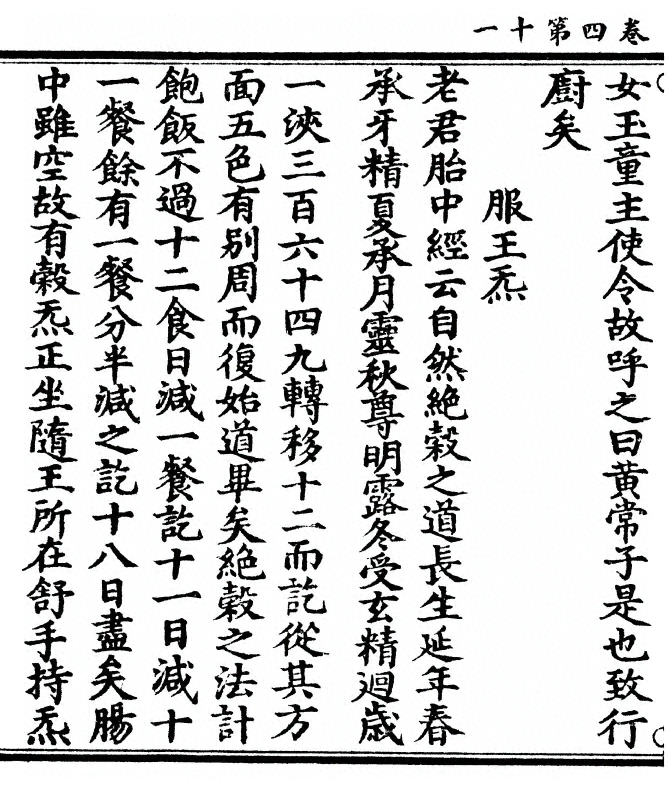 卷四第十一
女玉童主使令故呼之曰黄常子是也致行
廚矣
服王炁
老君胎中經云自然絶穀之道長生延年春
承牙精夏承月靈秋尊明露冬受玄精迴歳
一浹三百六十四九轉移十二而訖從其方
面五色有别周而復始道畢矣絶穀之法計
飽飯不過十二食日減一餐訖十一日減十
一餐餘有一餐分半減之訖十八日盡矣腸
中雖空故有穀炁正坐隨王所在舒手持炁